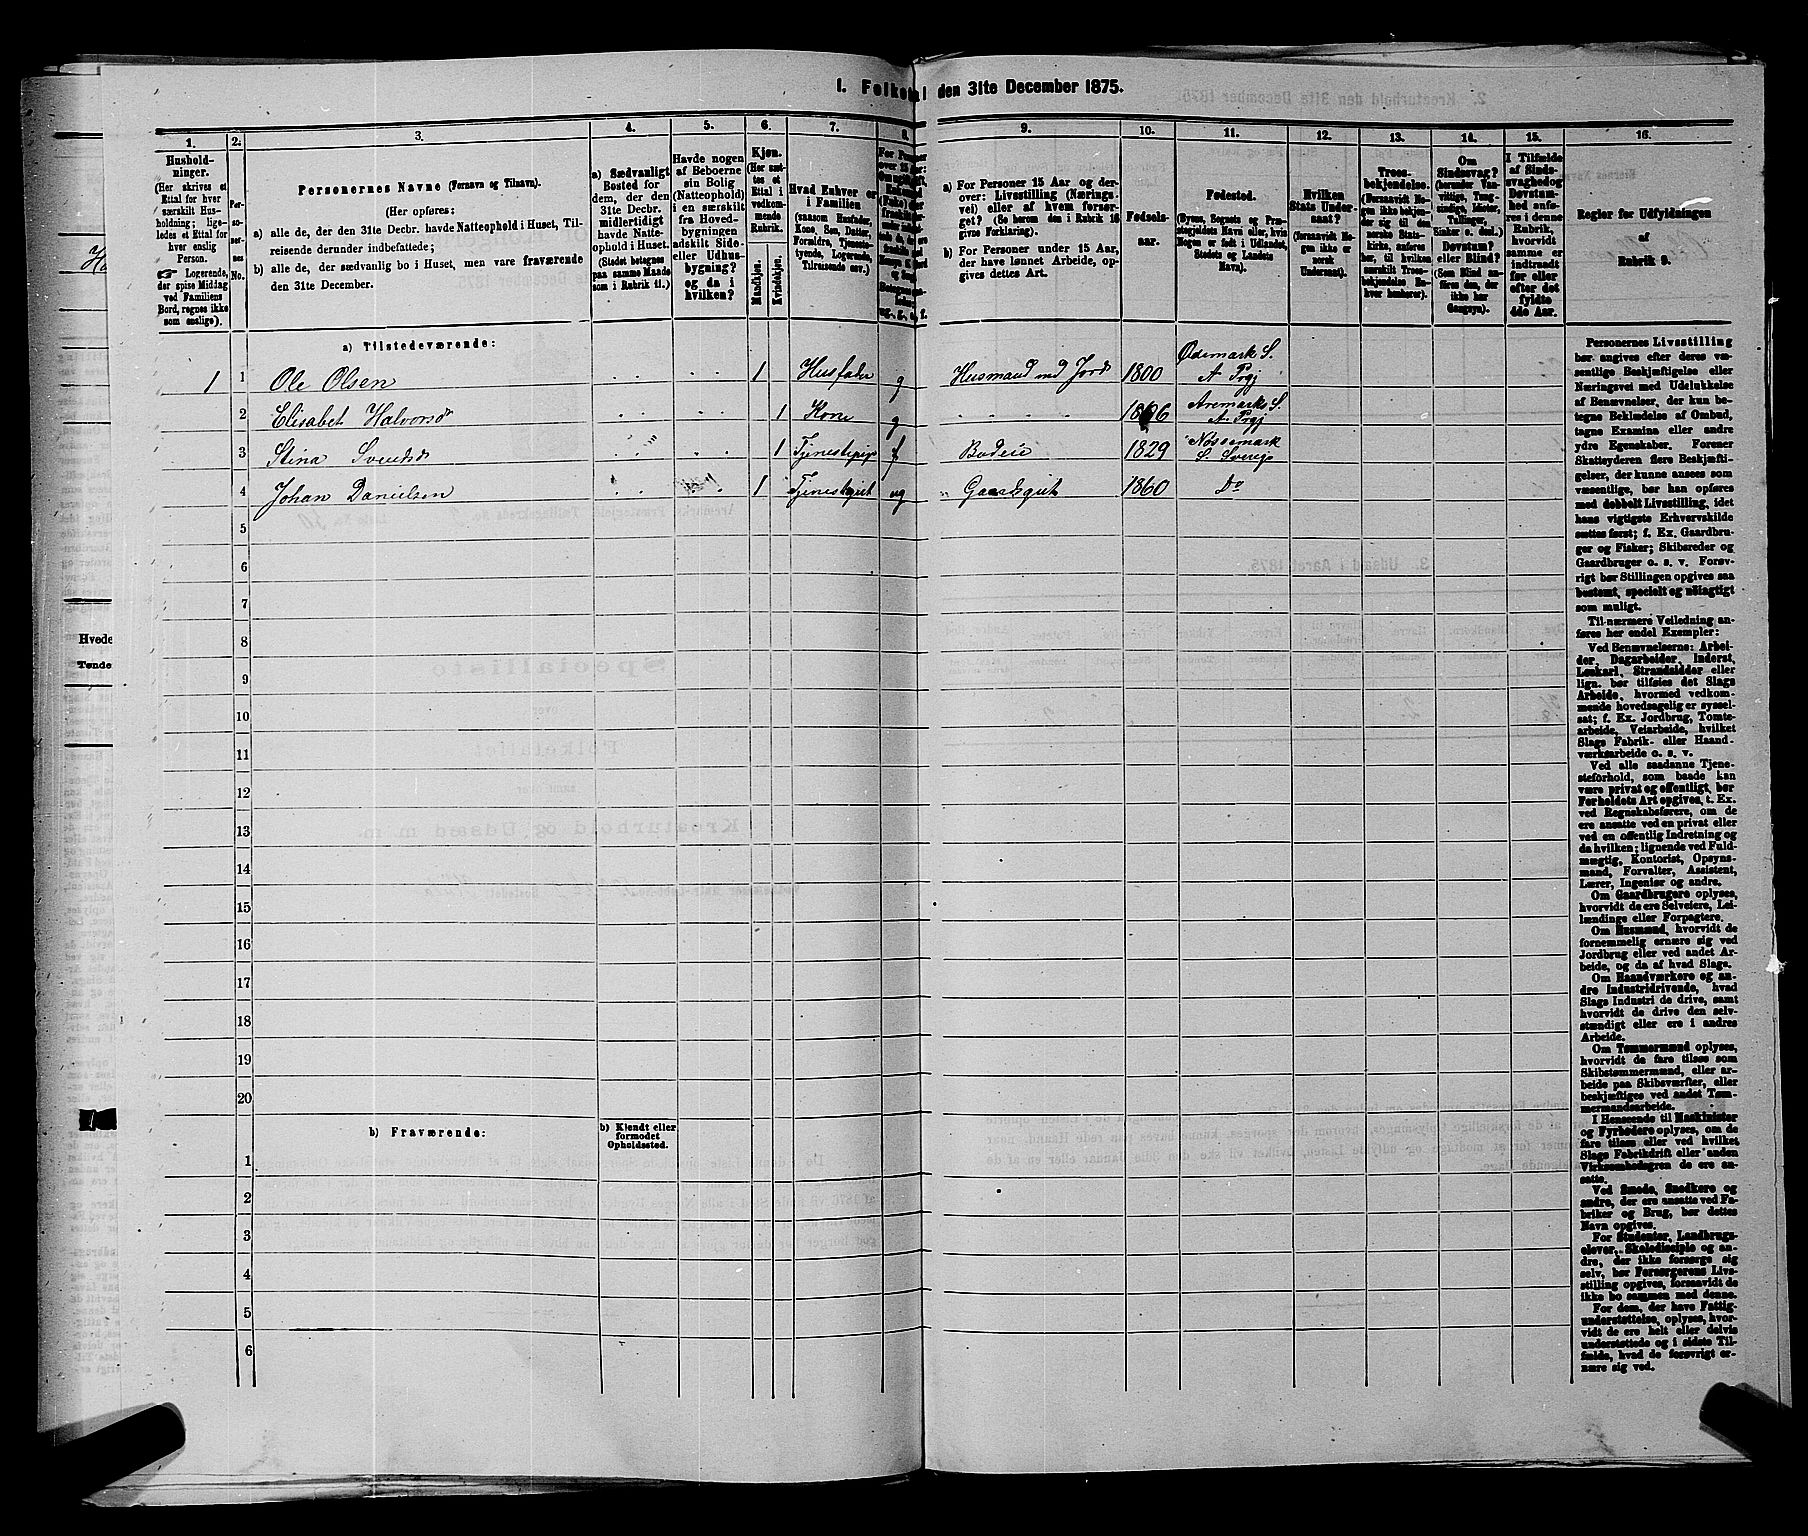 1. Folketal den 31te December 1875.
1.
2.
3.
4.
5.
6.
7.
8.
9.
10.
11.
12.
13.
14.
15.
16.
Hushold-
ninger.
(Her skrives et
Ettal for hver
særskilt Hus-
holdning; lige-
ledes et Ettal for
hver enslig
Person.
☞ Logerende,
der spise Middag
ved Familiens
Bord, regnes ikke
som enslige).
Per-
so-
ner-
nes
No.
Personernes Navne (Fornavn og Tilnavn).
(Her opføres:
a) alle de, der den 31te Decbr. havde Natteophold i Huset, Til-
reisende derunder indbefattede;
b) alle de, der sædvanlig bo i Huset, men vare fraværende
den 31te December.
a) Sædvanligt
Bosted for
dem, der den
31te Decbr.
midlertidigt
havde Natte-
ophold i Huset.
(Stedet betegnes
paa samme Maade
som i Rubrik 11.)
Havde nogen
af Beboerne
sin Bolig
(Natteophold)
i en særskilt
fra Hoved-
bygningen
adskilt Side-
eller Udhus-
bygning?
og da i
hvilken?
Kjøn.
(Her sæt-
tes et
Ettal i
vedkom-
mende
Rubrik.
Mandkjøn.
Kvindekjøn.
Hvad Enhver er
i Familien
(saasom Husfader,
Kone, Søn, Datter,
Forældre, Tjeneste-
tyende, Logerende,
Tilreisende osv.)
a) For Personer 15 Aar og der-
over: Livsstilling (Nærings-
vei) eller af hvem forsør-
get? (Se herom den i Rubrik 16
givne Forklaring).
b) For Personer under 15 Aar,
der have lønnet Arbeide, op-
gives dettes Art.
Fødsels-
aar.
Fødested.
(Byens, Sognets og Præ-
stegjeldets Navn eller, hvis
Nogen er født i Udlandet,
Stedets og Landets
Navn).
Hvilken
Stats Under-
saat?
(forsaavidt No-
gen ikke er
norsk
Undersaat).
Troes-
bekjendelse.
(Forsaavidt No-
gen ikke bekjen-
der sig til den
norske Stats-
kirke, anføres
her, til hvilken
særskilt Troes-
bekjendelse En-
hver henhører).
Om
Sindssvag?
(herunder Van-
vittige, Tung-
sindige, Idioter,
Tullinger,
Sinker o. desl.)
Døvstum?
eller Blind?
(Som Blind an-
føres den, der
ikke har
Gangsyn).
I Tilfælde
af Sinds-
svaghed og
Døvstum-
hed anfø-
res i denne
Rubrik,
hvorvidt
samme er
indtraadt
før eller
efter det
fyldte
4de Aar.
Regler for Udfyldningen
af
Rubrik 9.
a) Tilstedeværende:
1 1 Ole Olsen 1 Husfader g Husmand med Jord 1800 Ødemark S. A Prgj
2 Elisabet Halvorsd. 1 Kone g Aremarks S. A. Prgj
3 Stina Svendsd 1 Tjenestepige f Budeie 1829 Nössemark S. Sverige
4 Johan Danielsen 1 Tjenestegut ug Gaardsgut 1860 Do
5
6
7
8
9
10
11
12
13
14
15
16
17
18
19
20
b) Fraværende:
b) Kjendt eller
formodet
Opholdssted.
1
2
3
4
5
6
Personernes Livsstilling
bør angives efter deres væ-
sentlige Beskjæftigelse eller
Næringsvei med Udelukkelse
af Benævnelser, der kun be-
tegne Beklædelse af Ombud,
tagne Examina eller andre
ydre Egenskaber. Forener
Skatteyderen flere Beskjæfti-
gelser, der kunne ansees som
væsentlige, bør han opføres
med dobbelt Livsstilling, idet
hans vigtigste Erhvervskilde
sættes først; f. Ex. Gaardbru-
ger og Fisker; Skibsreder og
Gaardbruger o. s. v. Forøv-
rigt bør Stillingen opgives saa
bestemt, specielt og nöiagtigt
som muligt.
Til nærmere Veiledning an-
føres her endel Exempler:
Ved Benævnelserne: Arbei-
der, Dagarbeider, Inderst,
Løskarl, Strandsidder eller
lign. bør tilføies det Slags
Arbeide, hvormed vedkom-
mende hovedsagelig er syssel-
sat; f. Ex. Jordbrug, Tomte-
arbeide, Veiarbeide, hvilket
Slags Fabrik- eller Haand-
værksarbeide o. s. v.
Ved alle saadanne Tjene-
steforhold, som baade kan
være privat og offentligt, bør
Forholdets Art opgives, t. Ex.
ved Regnskabsførere, om de
ere ansatte ved en privat eller
ved en offentlig Indretning og
da hvilken; lignende ved Fuld-
mægtig, Kontorist, Opsyns-
mand, Forvalter, Assistent,
Lærer, Ingeniør og andre.
Om Gaardbrugere oplyses,
hvorvidt de ere Selveiere, Lei-
lændinge eller Forpagtere.
Om Husmænd, hvorvidt de
fornemmelig ernære sig ved
Jordbrug eller ved andet Ar-
beide, og da af hvad Slags.
Om Haandværkere og an-
dre Industridrivende, hvad
Slags Industri de drive, samt
hvorvidt de drive den selv-
stændigt eller ere i andres
Arbeide.
Om Tømmermænd oplyses,
hvorvidt de fare tilsøs som
Skibstømmermænd, eller ar-
beide paa Skibsværfter, eller
beskjæftiges ved andet Tøm-
mermandsarbeide.
I Henseende til Maskinister
og Fyrbødere oplyses, om de
fare tilsøs eller ved hvilket
Slags Fabrikdrift eller anden
Virksomhedsgren de ere an-
satte.
Ved Smede, Snedkere og
andre, der ere ansatte ved Fa-
briker og Brug, bør dettes
Navn opgives.
For Studenter, Landbrugs-
elever, Skoledisciple og an-
dre, der ikke forsørge sig
selv, bør Forsørgerens Livs-
stilling opgives, forsaavidt de
ikke bo sammen med denne.
For dem, der have Fattig-
understøttelse, oplyses, hvor-
vidt de ere helt eller delvis
understøttede og i sidste Til-
fælde, hvad de forøvrigt er-
nære sig ved.
Hvede
Tønde